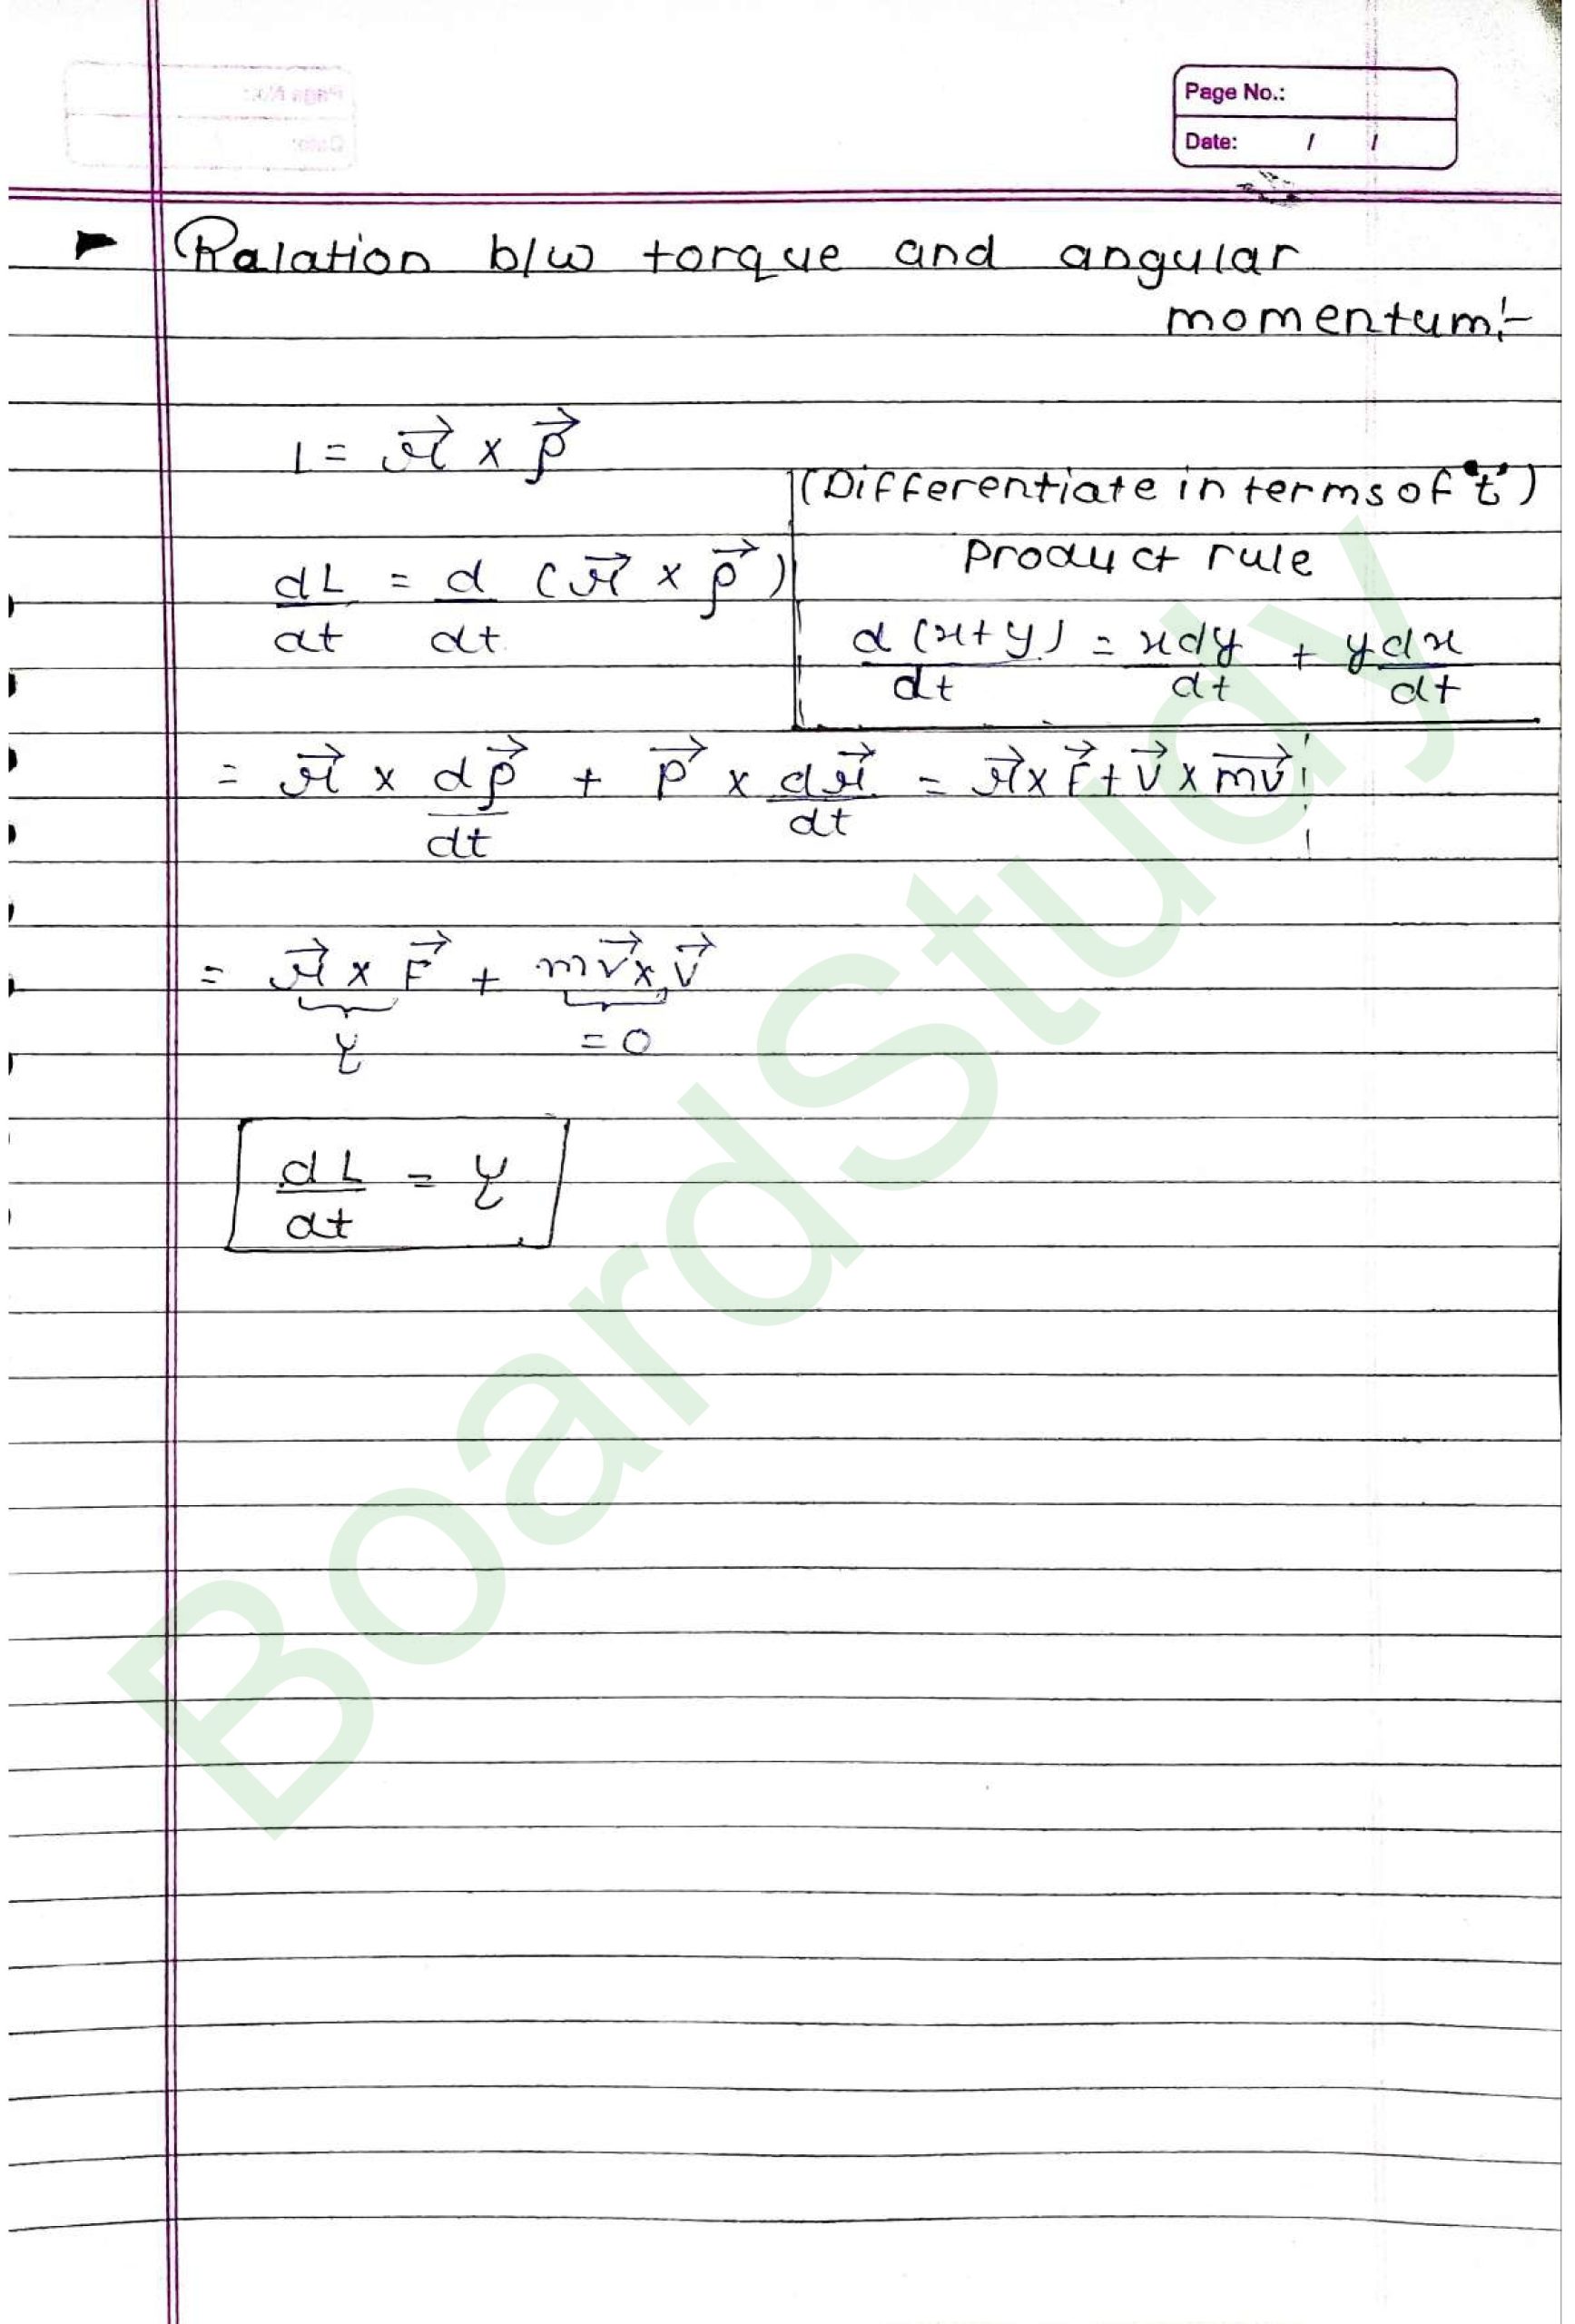 Page No.:
Date: / /
Ralation b/w torque and angular
momentum:-
L = r⃗ × p⃗
(Differentiate in terms of 't')
Product rule
dL/dt = d/dt (r⃗ × p⃗)
d(x+y)/dt = xdy/dt + ydx/dt
= r⃗ × dp⃗/dt + p⃗ × dr⃗/dt = r⃗ × F⃗ + v⃗ × mv⃗
= r⃗ × F⃗ + mv⃗ × v⃗
τ =0
dL/dt = τ
BoardStudy